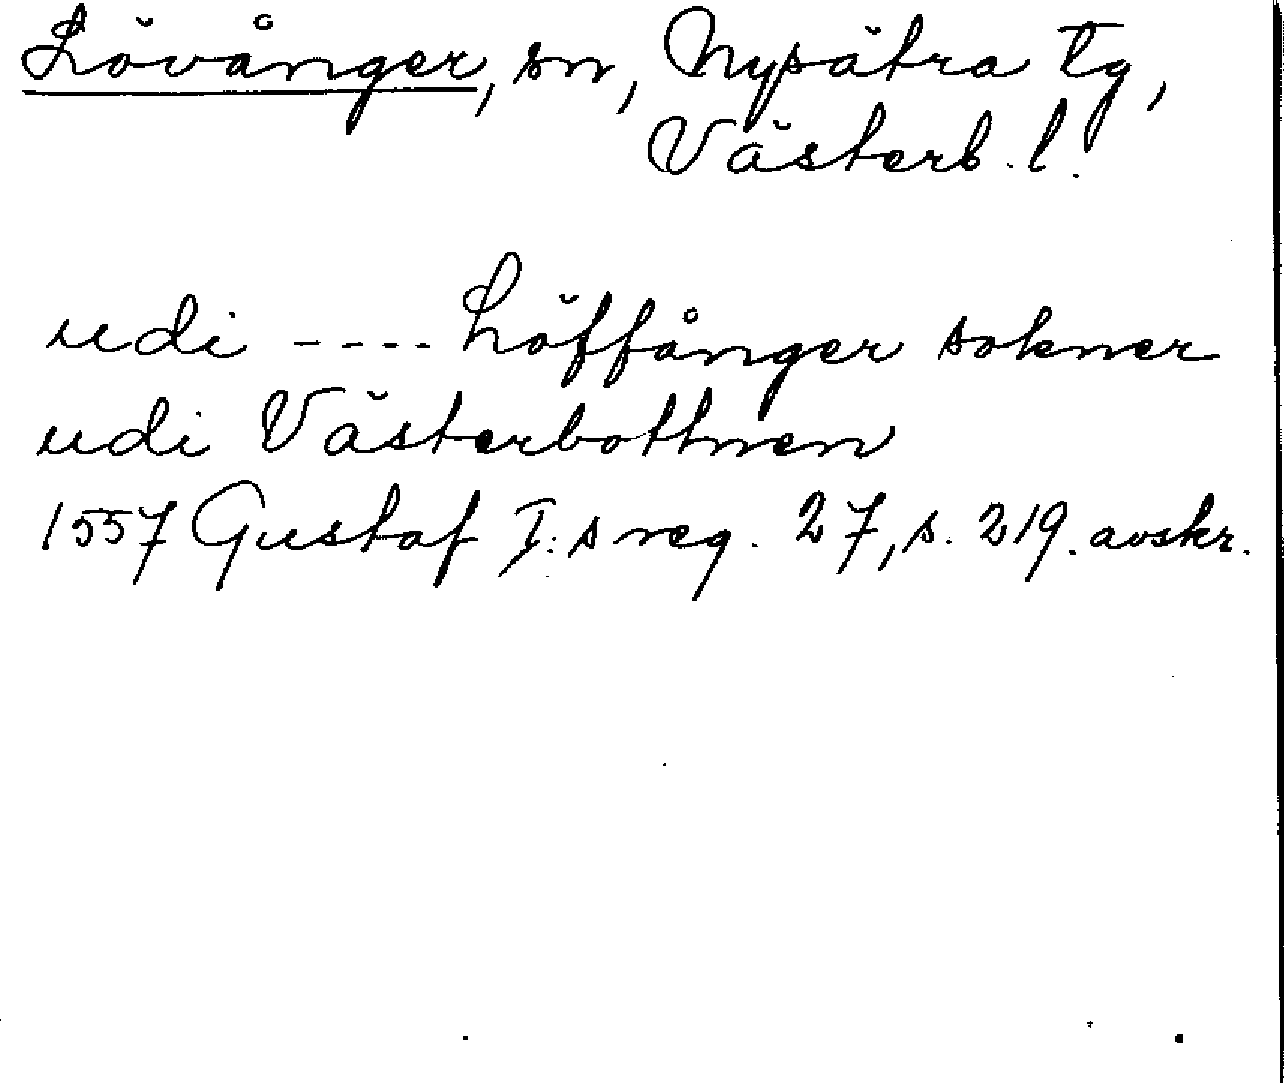 Lövånger, sn, Nysätra tg,
Västerb. l.
udi ---- Löffånger sokner
udi Västerbottnen
1557 Gustaf I:s reg. 27, s. 219. avskr.